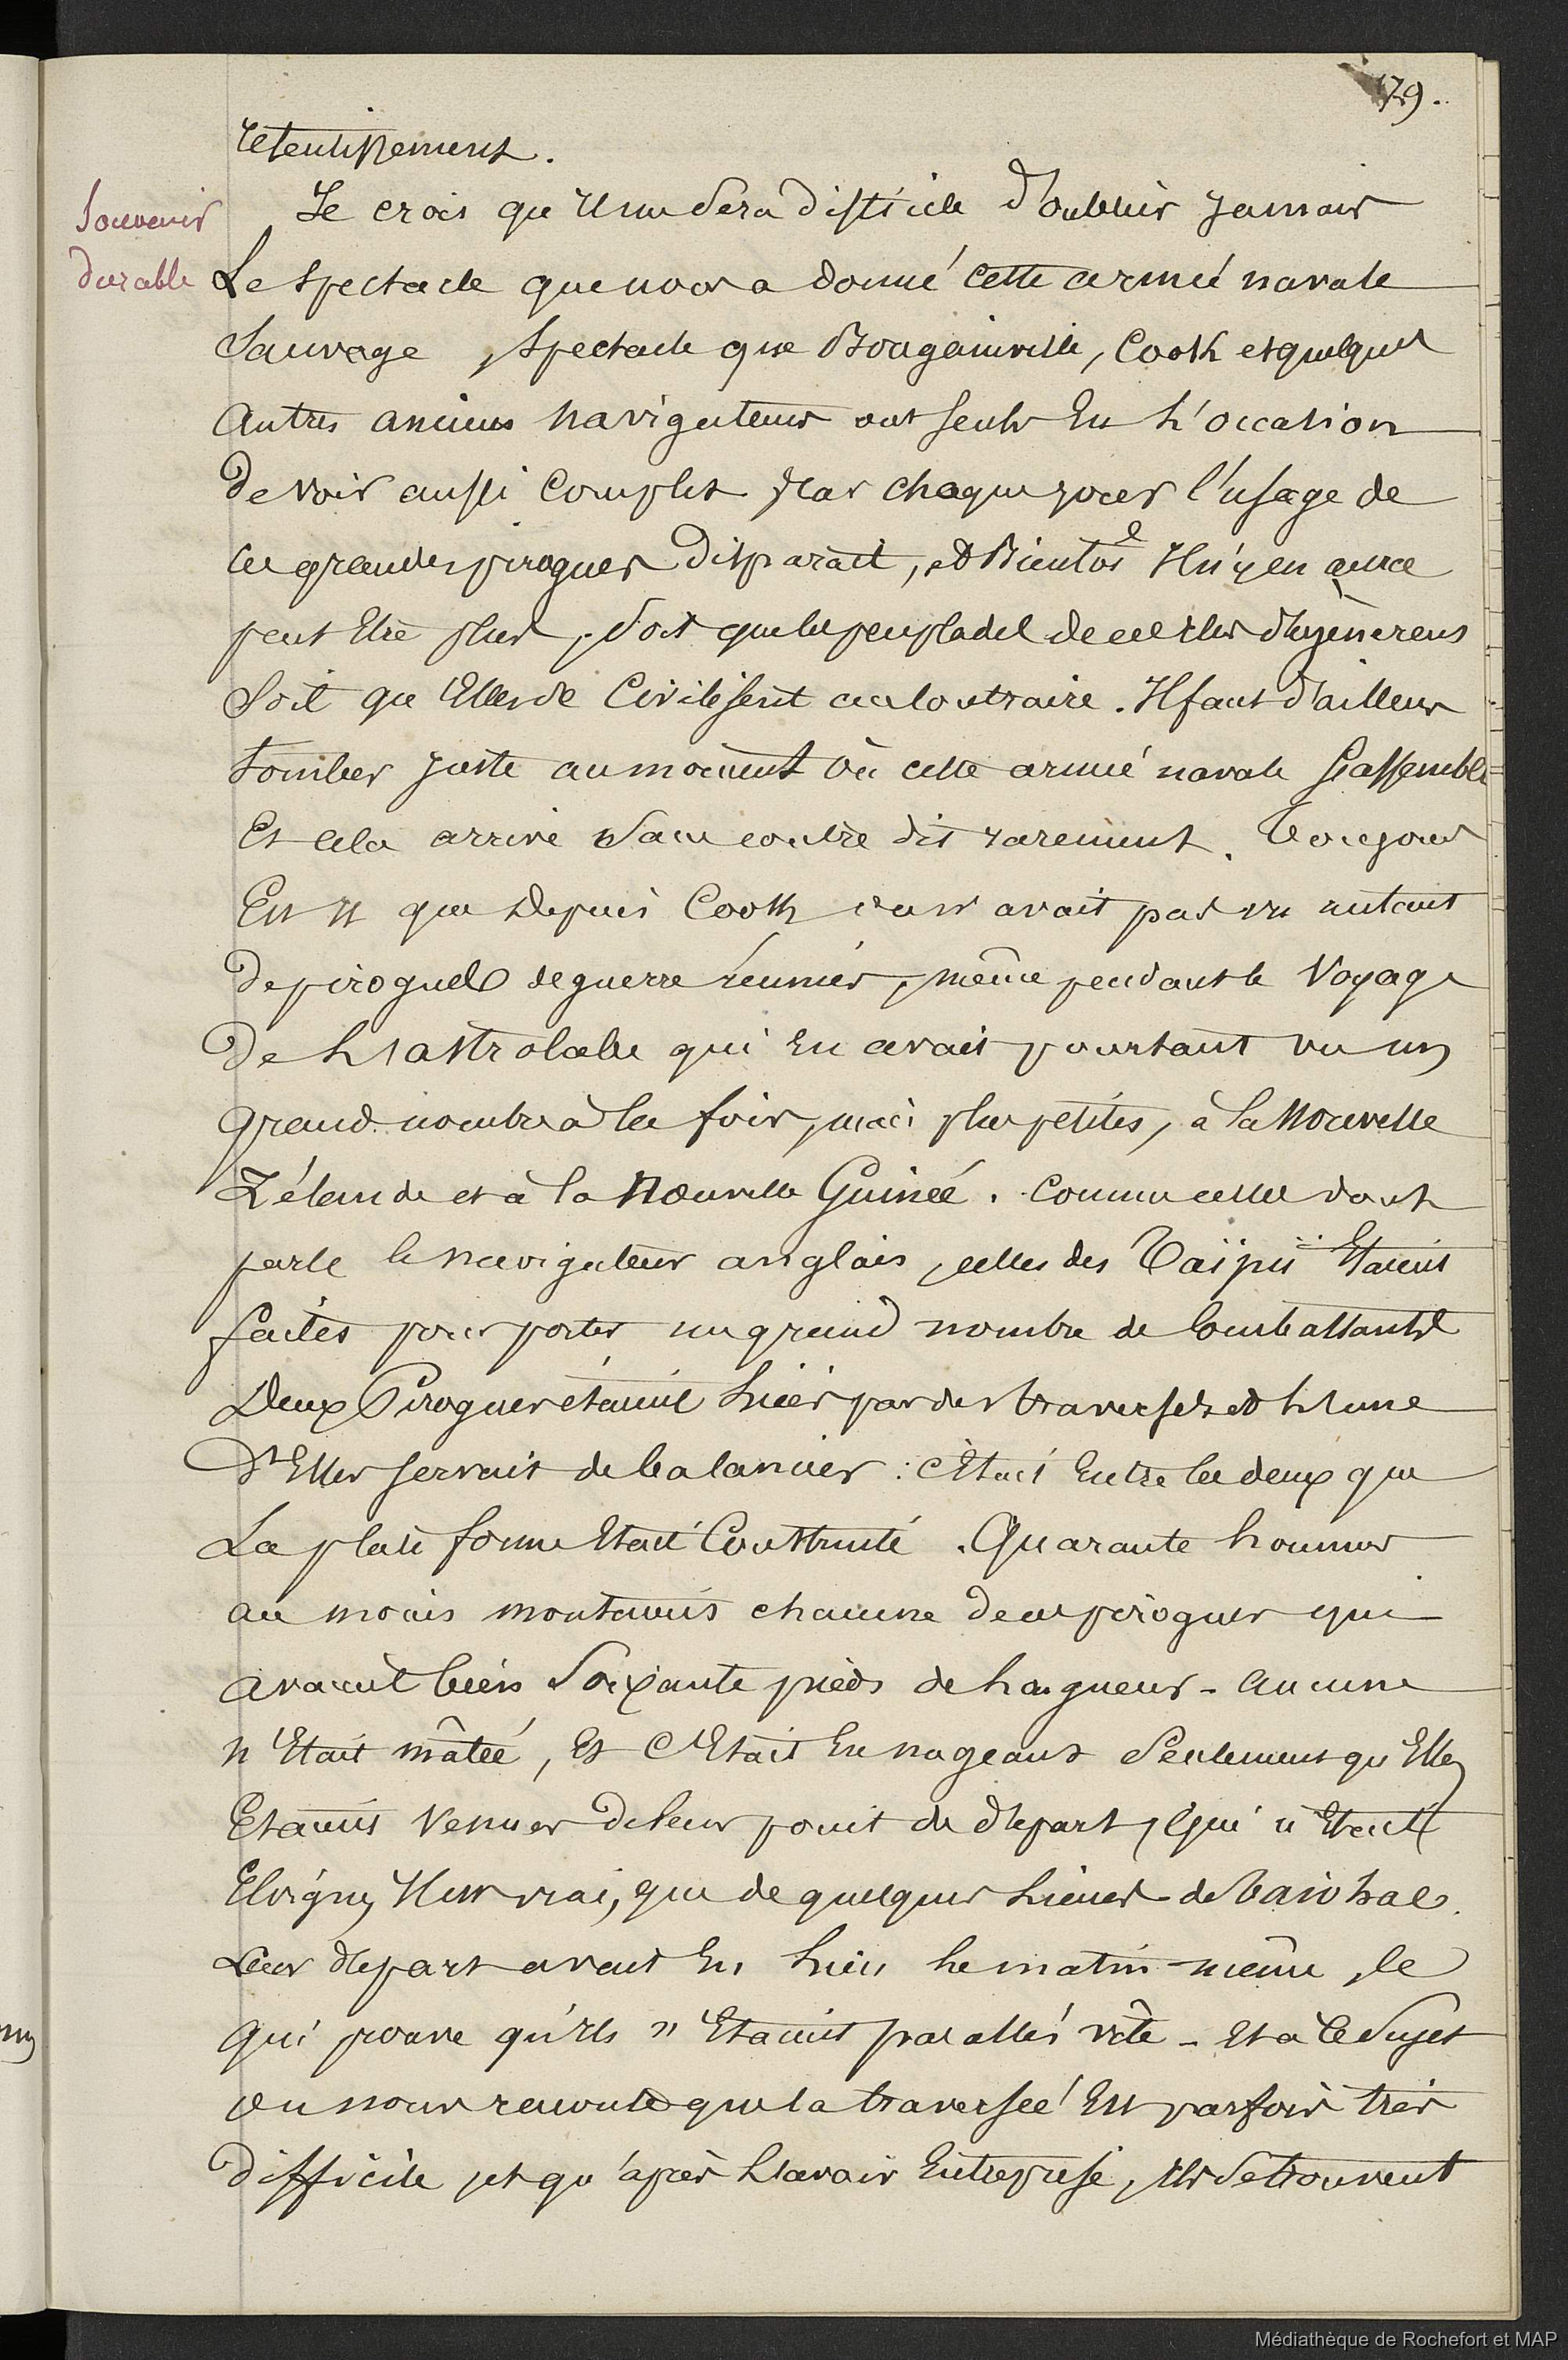 179.
retentissement.
Souvenir
durable
Je crois qu'il me sera difficile d'oublier jamais
Le spectacle que nous a donné cette armée navale
Sauvage, spectacle que Bougainville, Cook et quelques
autres anciens navigateurs ont seuls Eu L'occasion
de voir aussi complet. Car chaque jour l'usage de
ces grandes pirogues disparait, et Bientôt Il n'y en aura
peut Etre plus, soit que les peuplades de ces Iles dégénèrent
Soit qu'Elles se civilisent au contraire. Il faut d'ailleurs
tomber juste au moment où cette armée navale s'assemble
Et cela arrive sans contre dit rarement. Toujours
Est il que depuis Cook on n'avait pas vu autant
de pirogues de guerre réunies, même pendant le Voyage
De L'astrolabe qui En avait pourtant vu un
grand nombre à la fois, mais plus petites, à la Nouvelle
Zélande et à la Nouvelle Guinée. Comme celles dont
parle le navigateur anglais, celles des Taïpii Etaient
faites pour porter un grand nombre de combattants
Deux Pirogues étaient Liées par des traverses et L'une
d'Elles servait de balancier : C'Etait Entre les deux que
La plate forme Etait Construite. Quarante hommes
au moins montaient chacune de ces pirogues qui
avaient bien Soixante pieds de Longueur - aucune
n'Etait mâtée, Et C'Etait En nageant Seulement qu'Elles
Etaient Venues de leur point de départ, qui n'Etait
Eloigné, Il est vrai, que de quelques Lieues de Vaiohae.
Leur départ avait Eu Lieu Le matin même, Ce
qui prouve qu'ils n'Etaient pas allés vite - Et à ce Sujet
on nous raconte que la traversée Est parfois très
difficile et qu'après L'avoir Entreprise, Ils se trouvent
Médiathèque de Rochefort et MAP